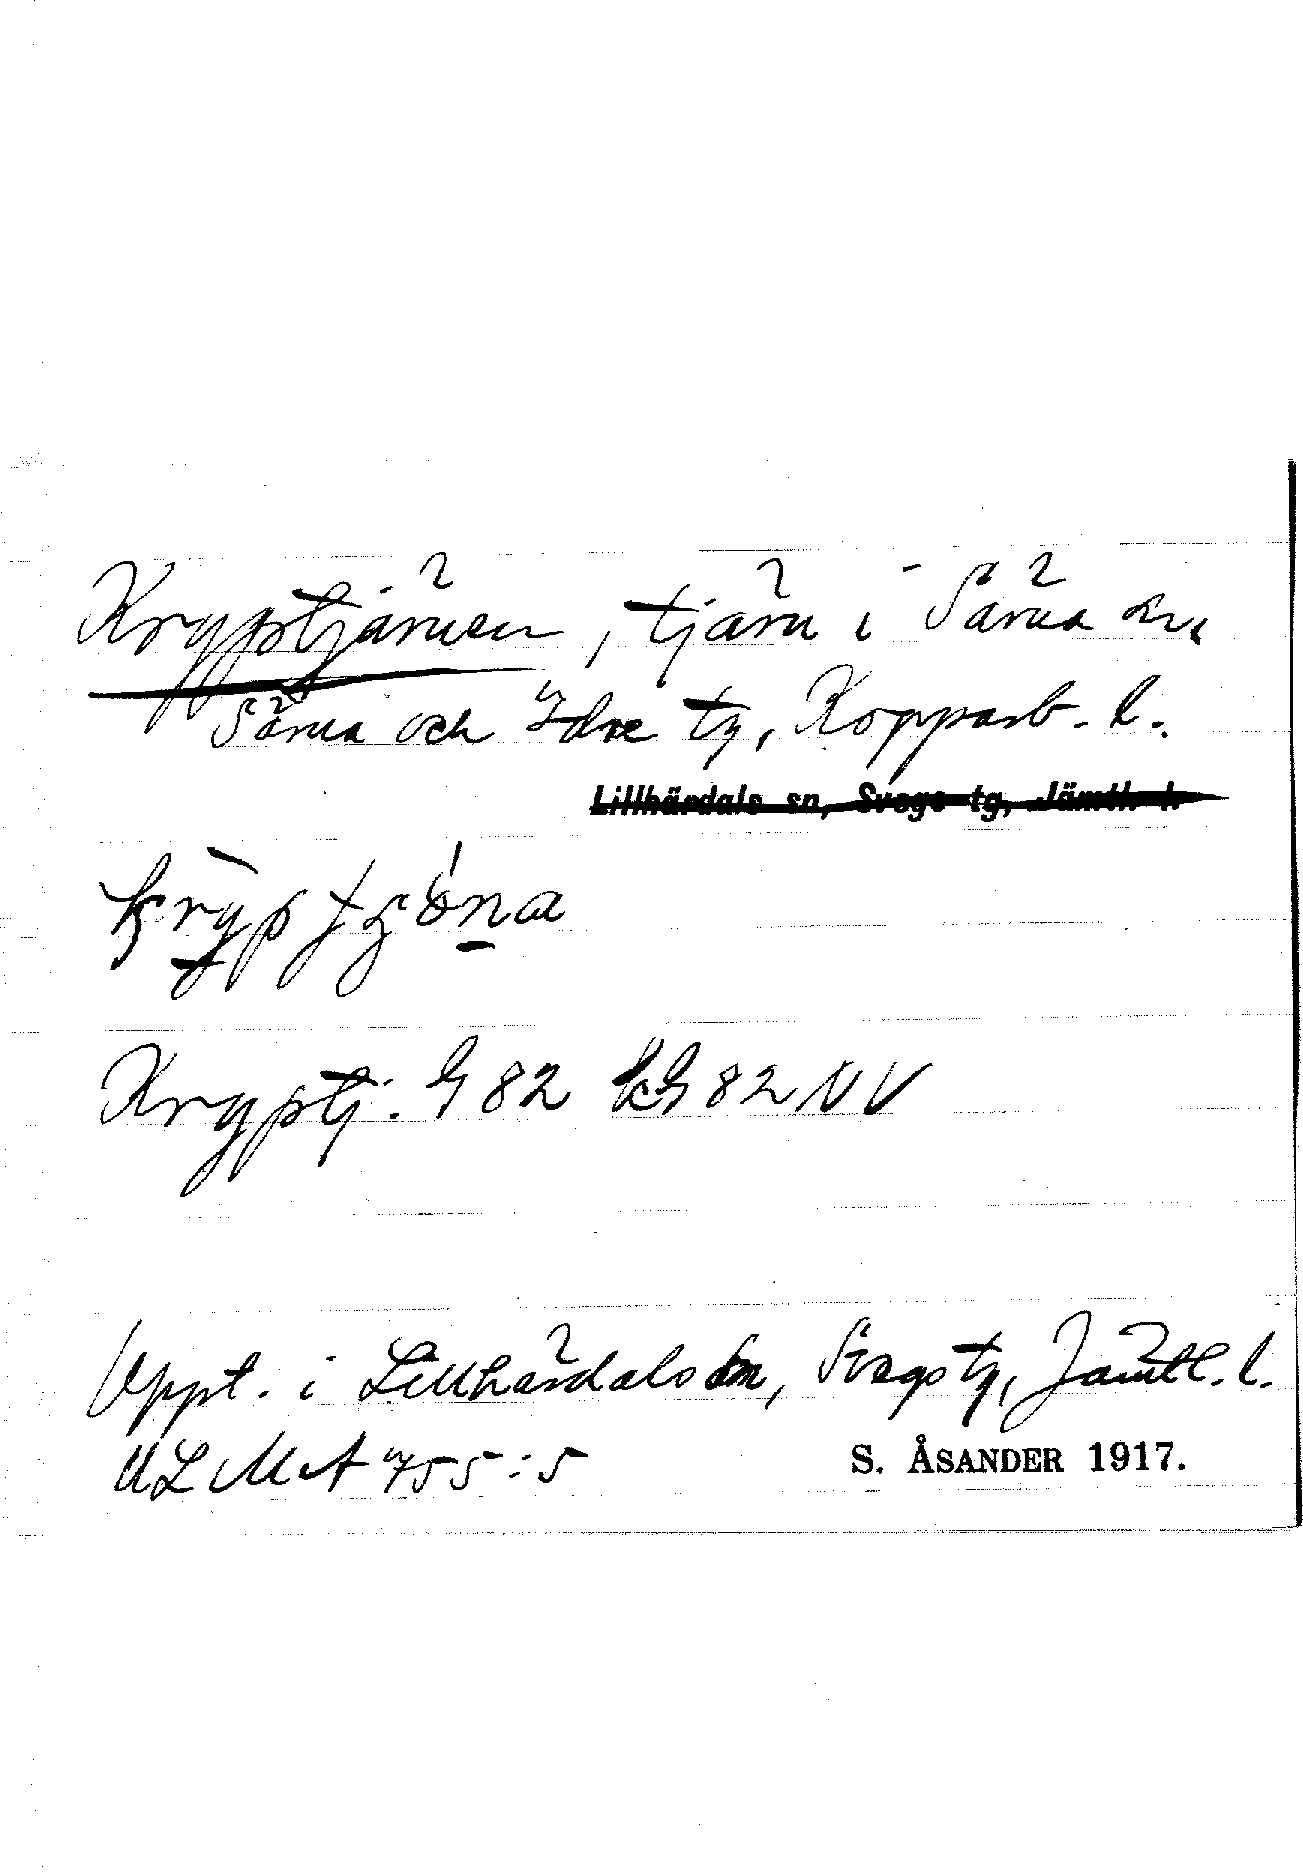 Kryptjärnen, tjärn i Särna sn,
Särna och Idre tg, Kopparb. l.
Lillhärdals sn, Svegs tg, Jämtl. l.
Kryptj. G 82 kG 82 NV
Uppt. i Lillhärdals sn, Svegs tg, Jämtl. l.
ULMA 755:5 S. ÅSANDER 1917.